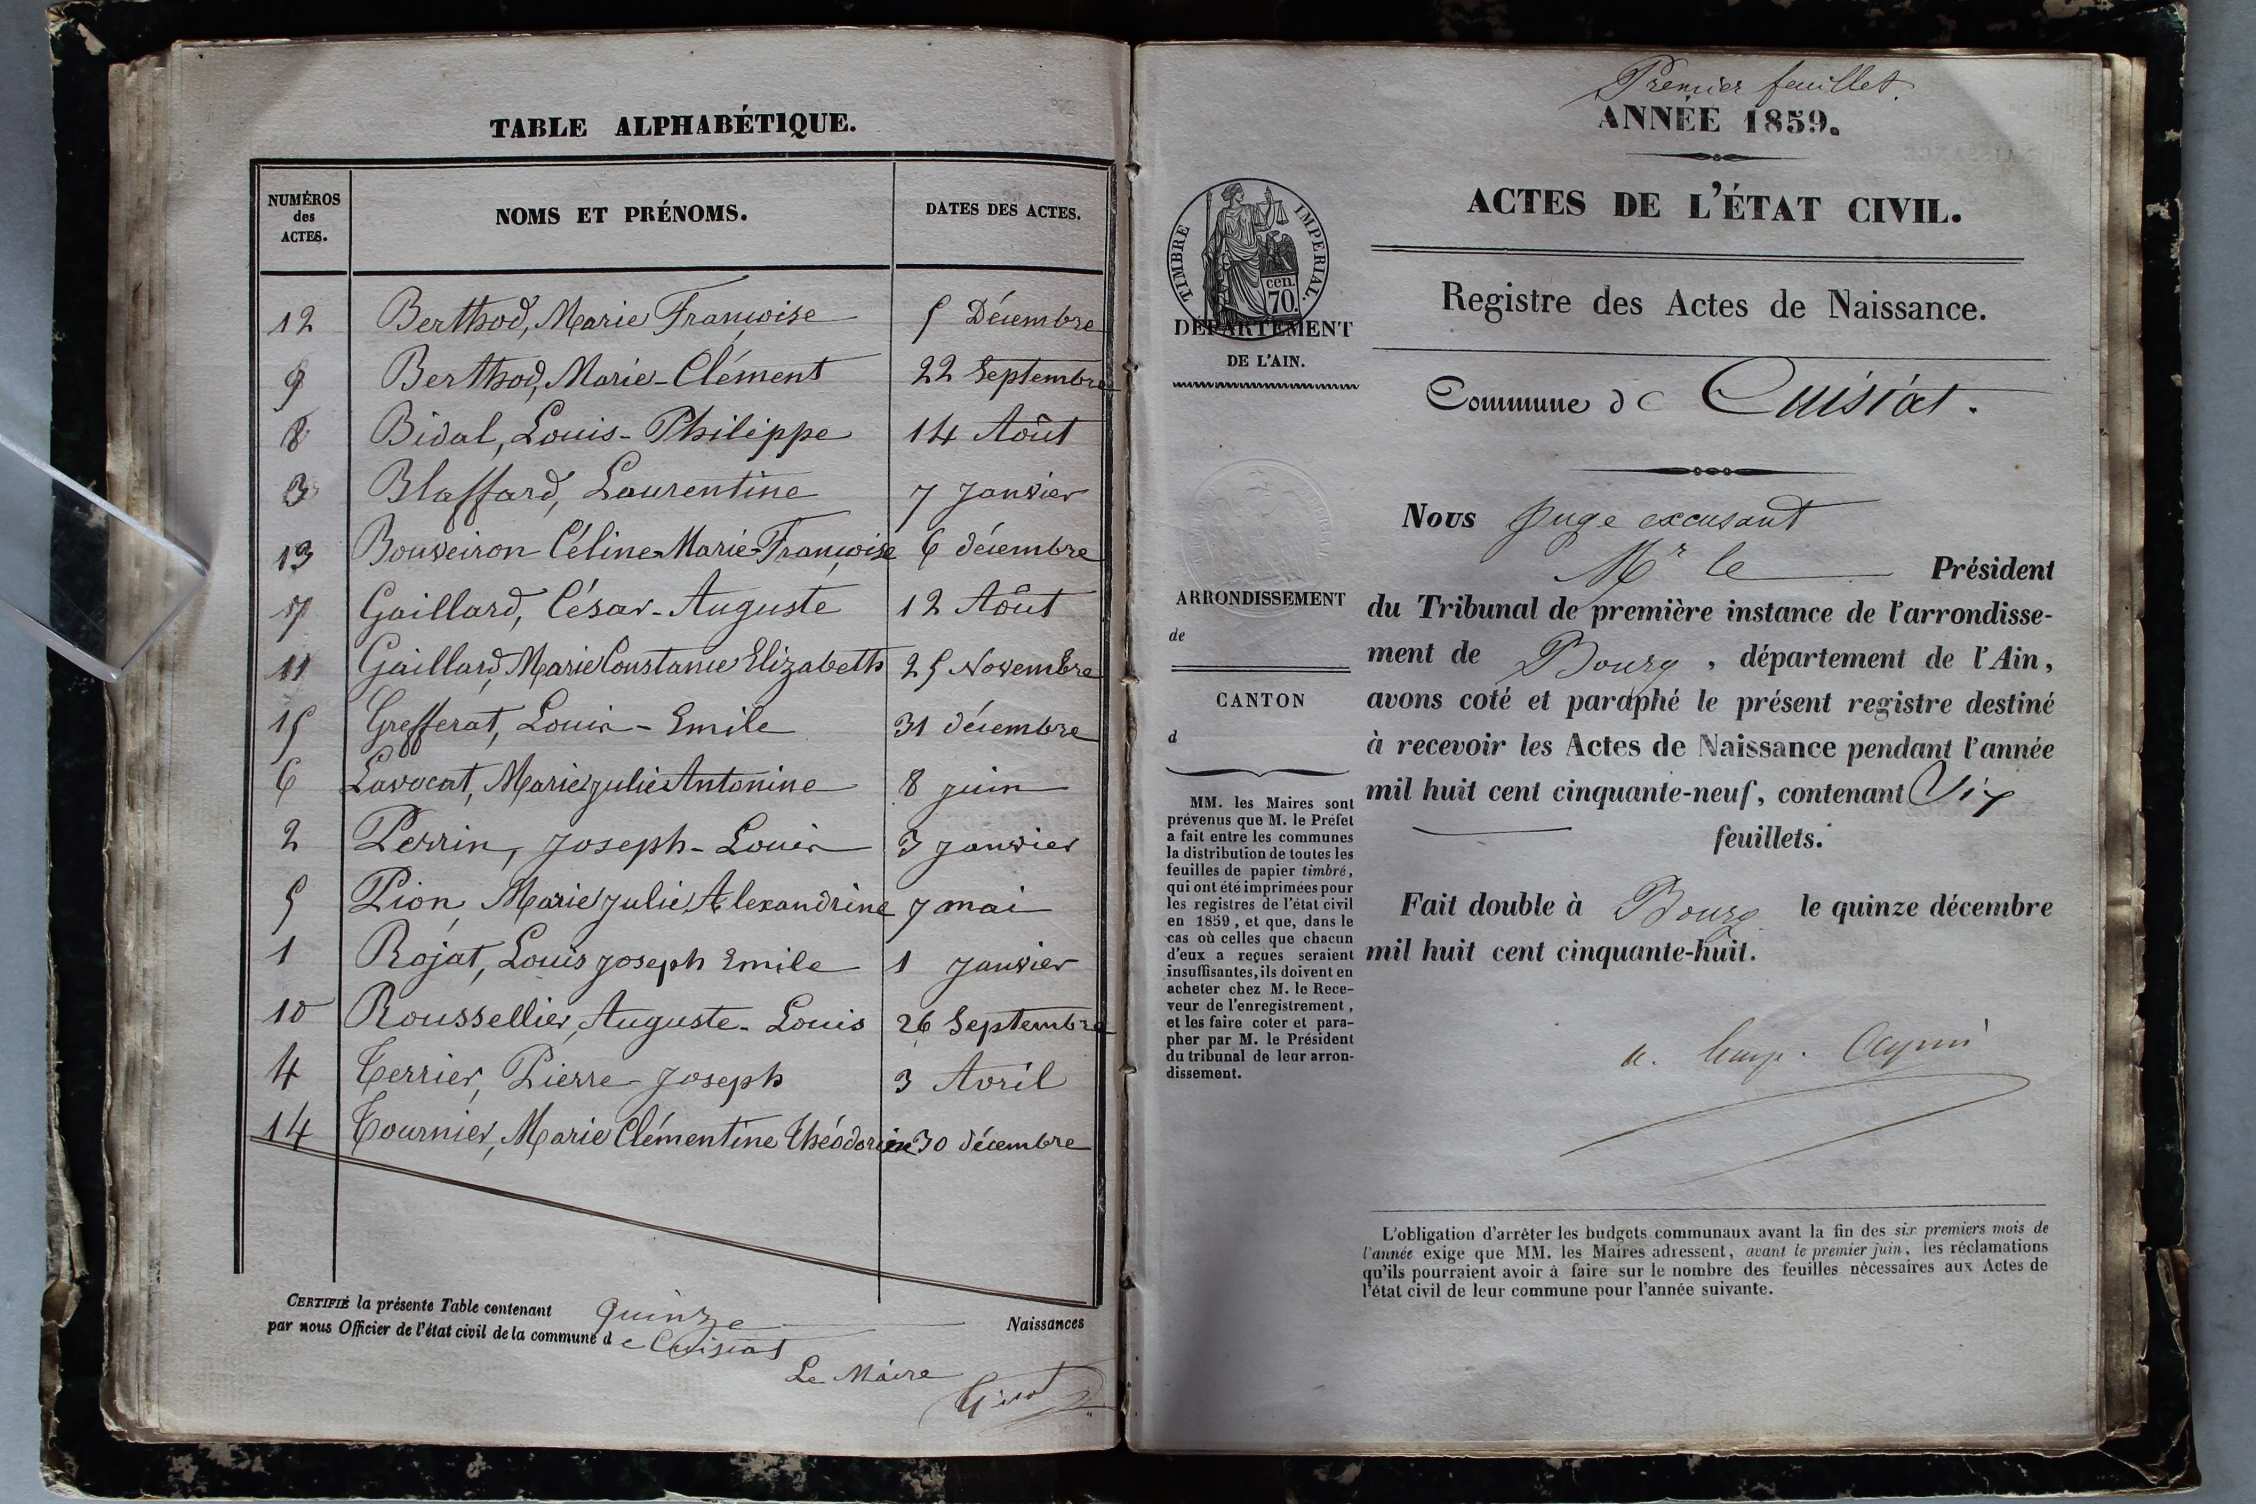 TABLE ALPHABÉTIQUE.
NUMÉROS des ACTES. NOMS ET PRÉNOMS. DATES DES ACTES.
12 Berthod, Marie Françoise 5 Décembre
9 Berthod, Marie-Clément 22 Septembre
8 Bidal, Louis-Philippe 14 Août
3 Blaffard, Laurentine 7 Janvier
13 Bouveiron Céline-Marie-Françoise 6 décembre
7 Gaillard, César-Auguste 12 Août
11 Gaillard, Marie Constance Elizabeth 25 Novembre
15 Grefferat, Louis-Emile 31 décembre
6 Lavocat, Marie julie Antonine 8 juin
2 Perrin, Joseph-Louis 3 Janvier
5 Pion, Marie Julie Alexandrine 7 mai
1 Rojat, Louis Joseph Emile 1 Janvier
10 Roussellier, Auguste-Louis 26 Septembre
4 Terrier, Pierre Joseph 3 Avril
14 Tournier, Marie Clémentine Théodorine 30 décembre
CERTIFIÉ la présente Table contenant quinze Naissances
par nous Officier de l'état civil de la commune de Cuisiat
Le Maire
Premier feuillet.
ANNÉE 1859.
ACTES DE L'ÉTAT CIVIL.
TIMBRE IMPERIAL.
cen.
70.
DÉPARTEMENT
DE L'AIN.
Registre des Actes de Naissance.
Commune de Cuisiat.
Nous Juge excusant
Mr le Président
du Tribunal de première instance de l'arrondisse-
ment de Bourg, département de l'Ain,
avons coté et paraphé le présent registre destiné
à recevoir les Actes de Naissance pendant l'année
mil huit cent cinquante-neuf, contenant Six
feuillets.
Fait double à Bourg le quinze décembre
mil huit cent cinquante-huit.
ARRONDISSEMENT
de
CANTON
d
MM. les Maires sont
prévenus que M. le Préfet
a fait entre les communes
la distribution de toutes les
feuilles de papier timbré,
qui ont été imprimées pour
les registres de l'état civil
en 1859, et que, dans le
cas où celles que chacun
d'eux a reçues seraient
insuffisantes, ils doivent en
acheter chez M. le Rece-
veur de l'enregistrement,
et les faire coter et para-
pher par M. le Président
du tribunal de leur arron-
dissement.
L'obligation d'arrêter les budgets communaux avant la fin des six premiers mois de
l'année exige que MM. les Maires adressent, avant le premier juin, les réclamations
qu'ils pourraient avoir à faire sur le nombre des feuilles nécessaires aux Actes de
l'état civil de leur commune pour l'année suivante.